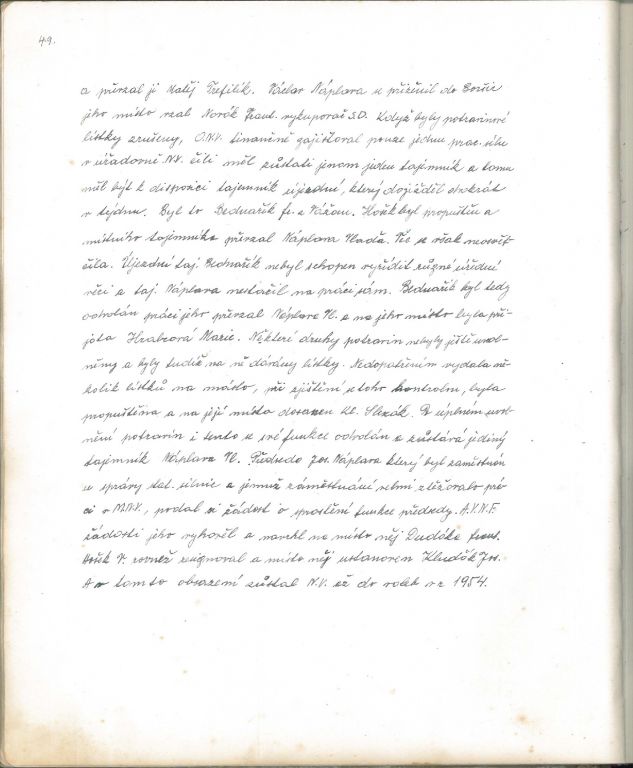 49.
a převzal ji Matěj Trefilík. Václav Náplava se přiženil do Boršic
jeho místo vzal Novák Frant. vykupovač S.D. Když byly potravinové
lístky zrušeny, O.N.V. finančně zajišťoval pouze jednu prac. sílu
v úřadovní N.V. čili měl zůstati jenom jeden tajemník a tomu
měl být k disposici tajemník újezdní, který dojížděl dvakrát
v týdnu. Byl to Bednařík fr. z Vážan. Hošek byl propuštěn a
místního tajemníka převzal Náplava Vlad. Vše se však neosvěd-
čilo. Újezdní taj. Bednařík nebyl schopen vyřídit různé úřední
věci a taj. Náplava nestačil na práci sám. Bednařík byl tedy
odvolán práci jeho převzal Náplava Vl. a na jeho místo byla při-
jata Hrabcová Marie. Některé druhy potravin nebyly ještě uvol-
něny a byly tudíž na ně dávány lístky. Nedopatřením vydala ně-
kolik lístků na máslo, při zjištění toho kontrolou, byla
propuštěna a na její místo dosazen Kl. Slezák. Po úplném uvol-
nění potravin i tento ze své funkce odvolán a zůstává jediný
tajemník Náplava Vl. Předseda Jos. Náplava který byl zaměstnán
u správy stát. silnic a jemuž zaměstnání velmi ztěžovalo prá-
ci v M.N.V., podal si žádost o sproštění funkce předsedy. A.V.N.F.
žádosti jeho vyhověl a navrhl na místo něj Dudáka frant.
Hošek V. rovněž resignoval a místo něj ustanoven Kludák Jos.
A v tomto obsazení zůstal N.V. až do voleb v r. 1954.